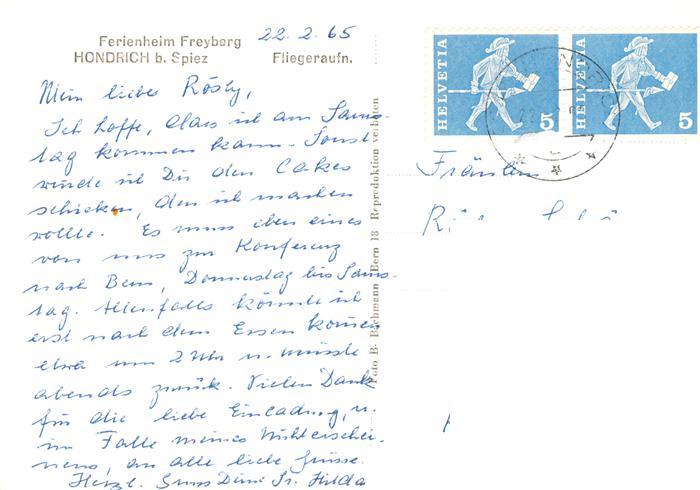 Ferienheim Freyberg
HONDRICH b. Spiez
Fliegeraufn.
22. 2. 65
Mein liebes Rösly,
Ich hoffe, dass ich am Sams-
tag kommen kann. Sonst
würde ich Dir den Cakes
schicken, den ich machen
wollte. Es muss eben eines
von uns zur Konferenz
nach Bern, Donnerstag bis Sams-
tag. Allenfalls könnte ich
erst nach dem Essen kommen
etwa um 2 Uhr u. müsste
abends zurück. Vielen Dank
für die liebe Einladung, u.
im Falle meines Nichterschei-
nens, an alle liebe Grüsse.
Herzl. Gruss Deine Sr. Hilda
Foto B. Bachmann Bern 18 Reproduktion verboten
HELVETIA 5
HELVETIA 5
Fräulein